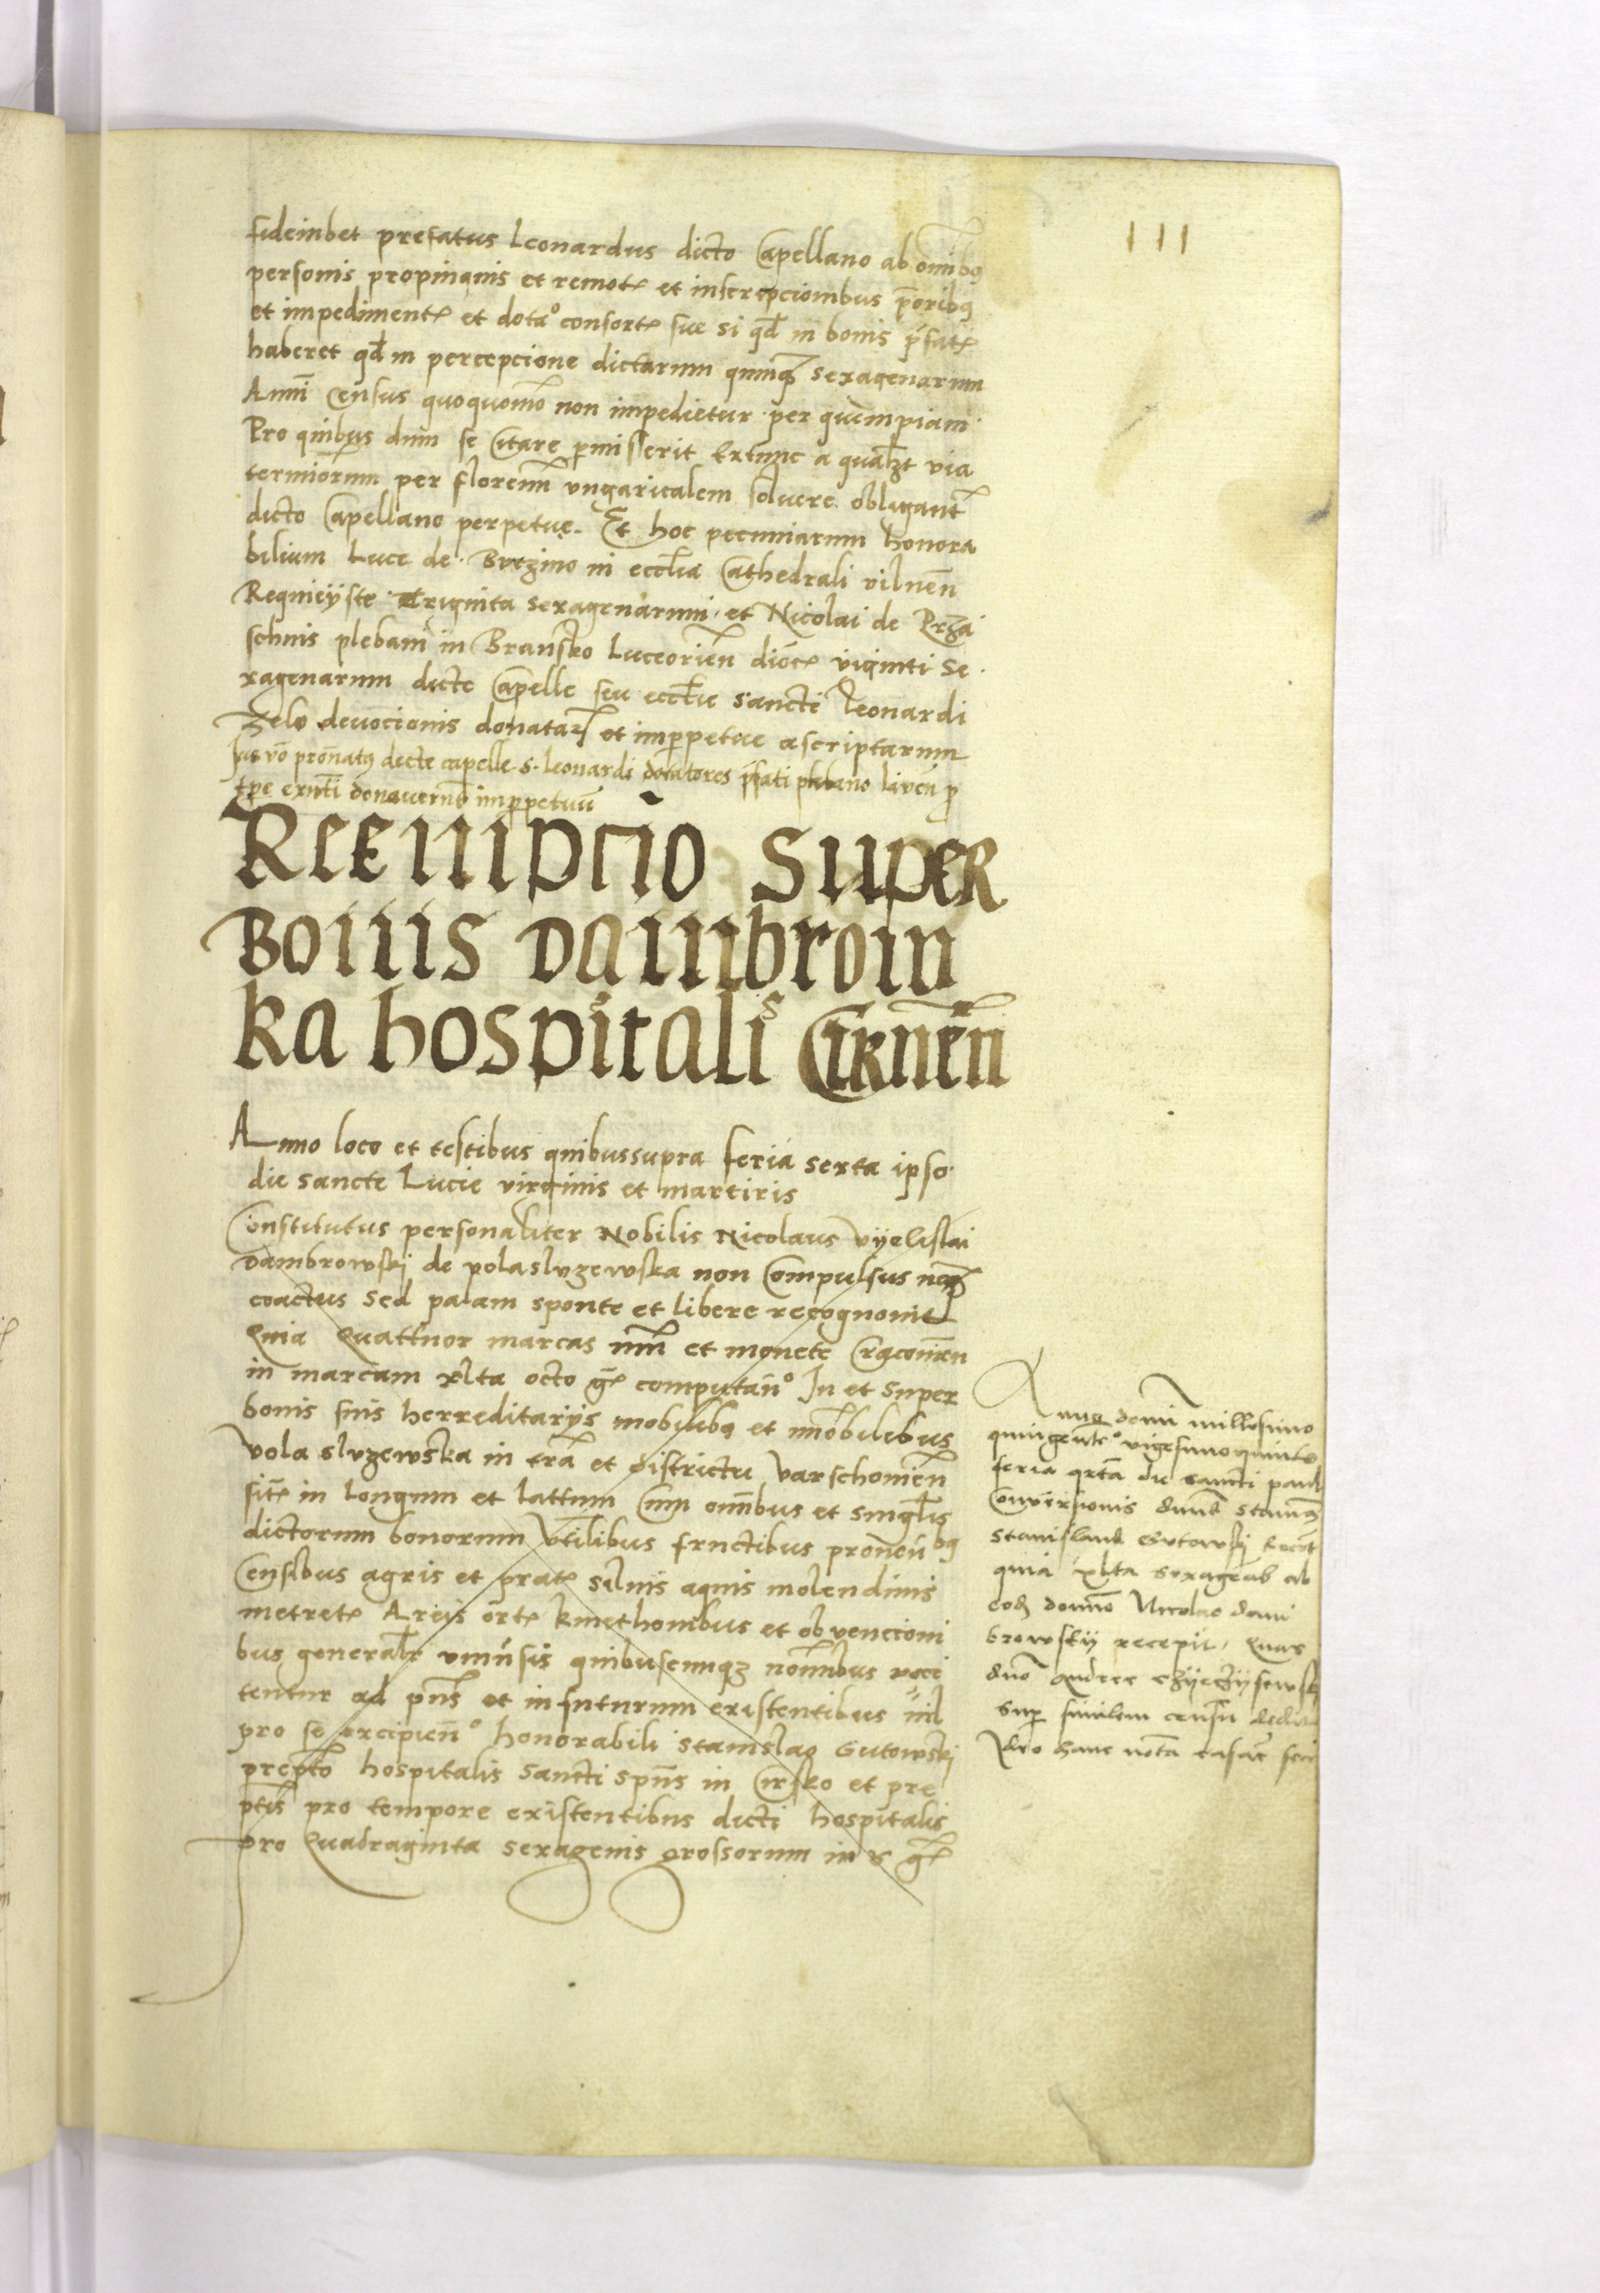 111
fideiubet prefatus Leonardus dicto Capellano ab om̄ibꝰ
personis propinquis et remotꝭ et inscrepcionibus p̄oribꝰ
et impedimentꝭ et dota° consortꝭ sue si qđ in bonis p̄fatꝭ
haberet qđ in percepcione dictarum quinqꝫ sexagenarum
Annī Census quoquomō non impedietur per quempiam
Pro quibus dum se Citare p̄misserit Extunc a qualꝫt via
termiorum per florenū ungaricalem soluere obligant̄
dicto Capellano perpetue. Et hoc pecuniarum honora
bilium Luce de Brzgino in eccl̄ia Cathedrali vilnen̄
Requieÿste triginta sexagenarum et Nicolai de Prza
schnis plebani in Bransko Luceorien̄ dioc̄ꝭ viginti se
xagenarum dicte Capelle seu eccl̄ie sancti Leonardi
Zelo devocionis donataꝝ et imperpetue ascriptarum
Jus vō pronatꝰ decte capelle s. leonardi donatores p̄fati plebano liven̄ p
tp̄e exn̄ti donaverūt imp̄petuū
Reempcio super
Bonis Dambrow
ka hospitalis Cirnen̄
Anno loco et testibus quibussupra feria sexta ipso
die sancte Lucie virginis et martiris
Constitutus personaliter Nobilis Nicolaus Vÿelislai
Dambrowskj de volasluzewska non Compulsus neqꝫ
coactus sed palam sponte et libere recognouit
Quia Quattuor marcas nūī et monete Cracouien̄
in marcam xlta octo ḡꝭ computan̄° In et super
bonis suis herreditarÿs mobilibꝰ et īmobilebus
Vola sluzewska in tr̄a et districtu Varschouien̄
sitꝭ in Longum et Lattum Cum om̄ibus et singl̄is
dictorum bonorum Vtilibus fructibus prouen̄bꝰ
Censibus agris et pratꝭ siluis aquis molendinis
metretꝭ Areis ortꝭ kmethonibus et obvencioni
bus general̄r vniūsis quibuscumqꝫ nōībus voci
tentur ad pn̄s et in futurum existentibus nīl
pro se excipien̄° honorabili Stanislao Gutowskj
prep̄to hospitalis sancti spūs in Cirsko et pre
ptis̄ pro tempore existentibus dicti hospitalis
pro Quadraginta sexagenis grossorum in v ḡꝭ
Anno domī millesimo
quingente° vigesimoquinto
feria qr̄ta die sancti pauli
Conversionis
Stanislaus Gutowskj
quia xlta sexagenas ab
eodꝫ domno Nicolao dam
browskÿ recepit, Quas
duō Andree
sup similem censū dedit
Ideo hanc notā casare feci